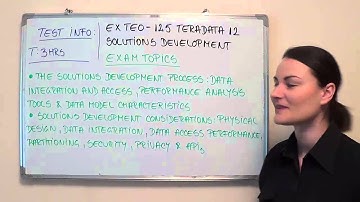 TEST INFO:
EX TEO-125 TERADATA 12
T: 3HRS
SOLUTIONS DEVELOPMENT
EXAM TOPICS
• THE SOLUTIONS DEVELOPMENT PROCESS: DATA
INTEGRATION AND ACCESS, PERFORMANCE ANALYSIS
TOOLS & DATA MODEL CHARACTERISTICS
• SOLUTIONS DEVELOPMENT CONSIDERATIONS: PHYSICAL
DESIGN, DATA INTEGRATION, DATA ACCESS PERFORMANCE,
PARTITIONING, SECURITY, PRIVACY & APIs